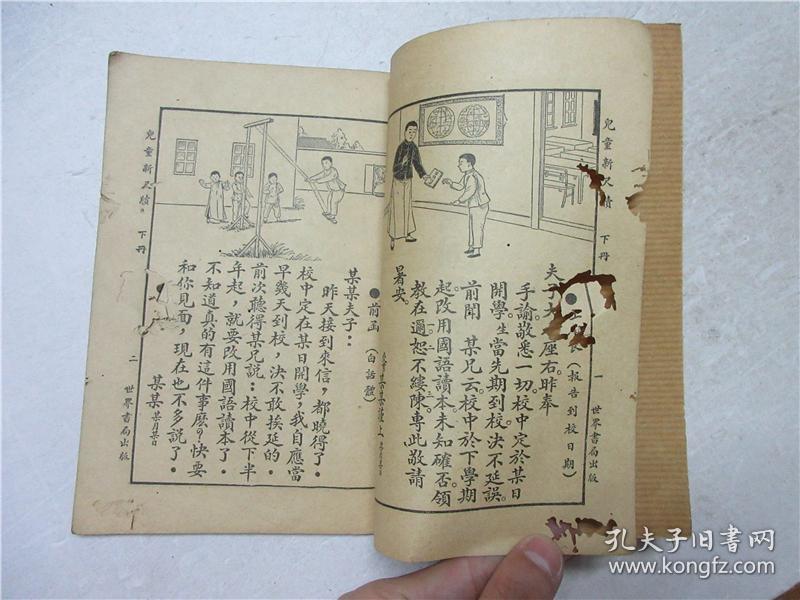 兒童新尺牘 下冊
一 世界書局出版
(報告到校日期)
座右昨奉
手諭敬悉一切校中定於某日
開學生當先期到校決不延誤
前聞 某兄云校中於下學期
起改用國語讀本未知確否領
教在邇恕不縷陳專此敬請
暑安
某某謹上
●前函(白話體)
某某夫子:
昨天接到來信,都曉得了.
校中定在某日開學,我自應當
早幾天到校,決不敢挨延的.
前次聽得某兄說:校中從下半
年起,就要改用國語讀本了.
不知道真的有這件事麽?快要
和你見面,現在也不多說了.
某某 某月某日
兒童新尺牘 下冊
二 世界書局出版
孔夫子旧書网
www.kongfz.com